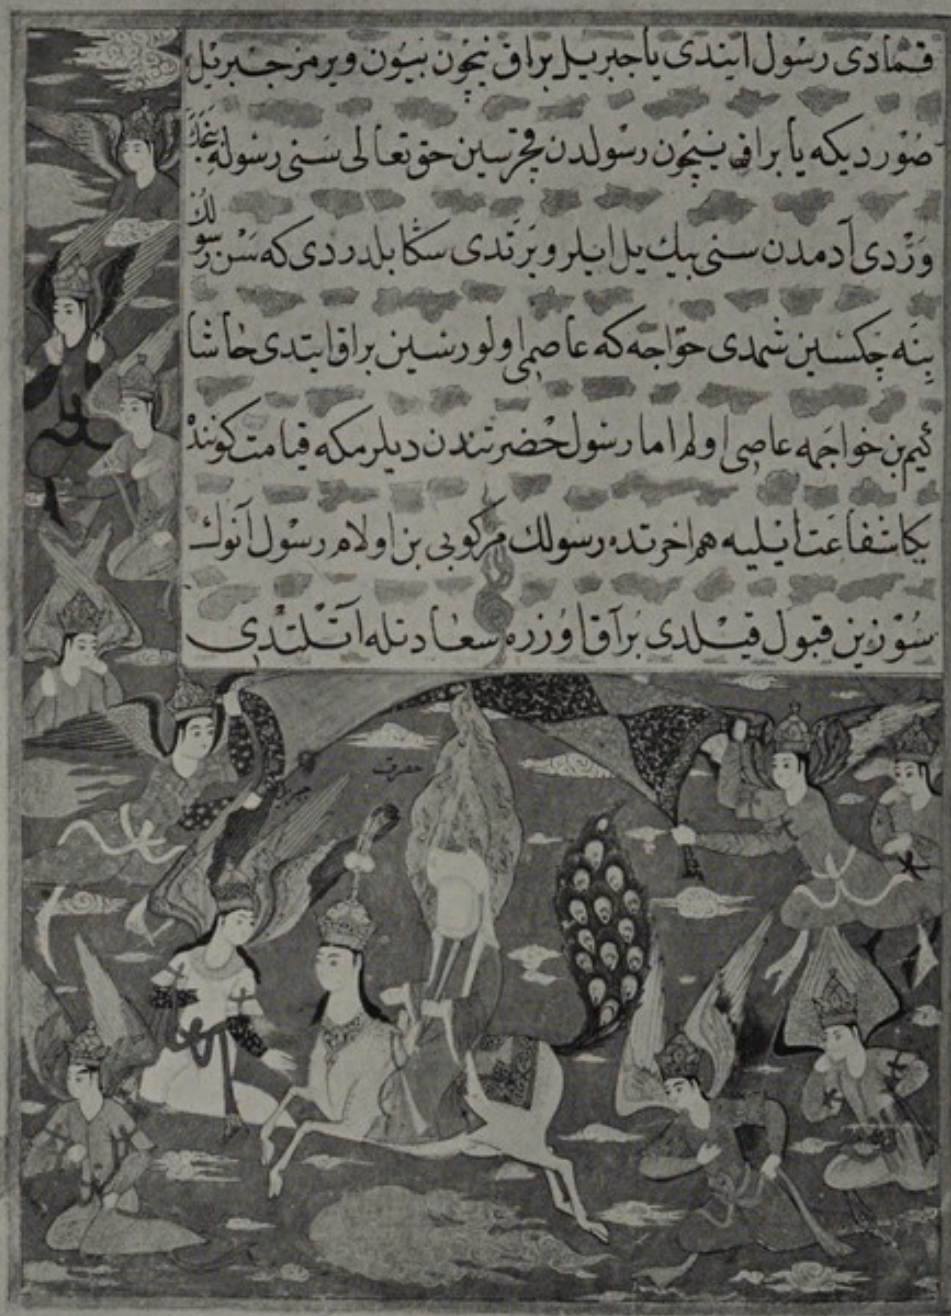 قمادى رسول ايتدى يا جبريل براق نيچون بيون ويرمز جبريل
صوردیکه يا براق نيچون رسولدن قچرسين حق تعالى سنى رسوله
وردى آدمدن سنى بيك يل ايلرو يرتدى سكا بلدردى كه سن رسولك
بنه چكسين شمدى خواجه كه عاصى اولورسين براق ايتدى حاشا
كيم بن خواجمه عاصى اولم اما رسول حضرتندن ديلرمكه قيامت كوننده
بكا شفاعت ايليه هم اخرتده رسولك مركوبى بن اولام رسول آنوك
سوزين قبول قيلدى براق اوزره سعادتله آتلندى
حضرت